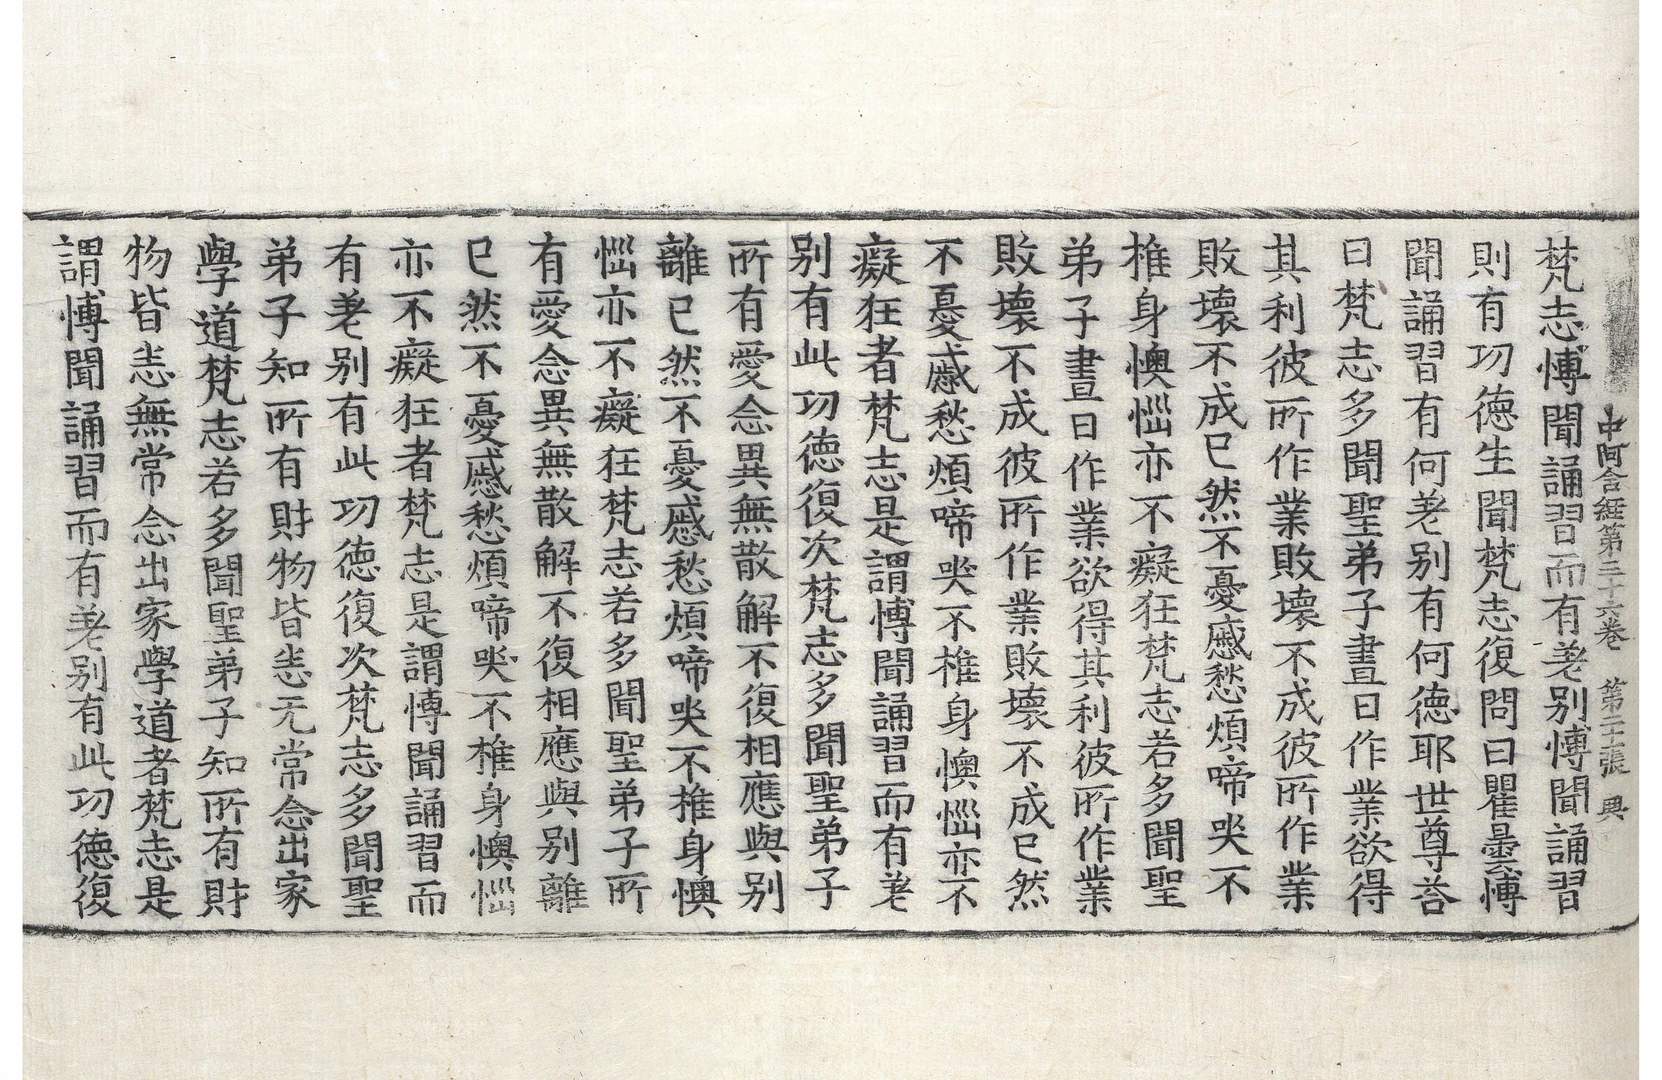 中阿含經第三十六卷 第二十張 興
梵志博聞誦習而有差別博聞誦習
則有功德生聞梵志復問曰瞿曇博
聞誦習有何差別有何德耶世尊荅
曰梵志多聞聖弟子晝日作業欲得
其利彼所作業敗壞不成彼所作業
敗壞不成已然不憂慼愁煩啼哭不
椎身懊惱亦不癡狂梵志若多聞聖
弟子晝日作業欲得其利彼所作業
敗壞不成彼所作業敗壞不成已然
不憂慼愁煩啼哭不椎身懊惱亦不
癡狂者梵志是謂博聞誦習而有差
別有此功德復次梵志多聞聖弟子
所有愛念異無散解不復相應與別
離已然不憂慼愁煩啼哭不椎身懊
惱亦不癡狂梵志若多聞聖弟子所
有愛念異無散解不復相應與別離
已然不憂慼愁煩啼哭不椎身懊惱
亦不癡狂者梵志是謂博聞誦習而
有差別有此功德復次梵志多聞聖
弟子知所有財物皆悉无常念出家
學道梵志若多聞聖弟子知所有財
物皆悉無常念出家學道者梵志是
謂博聞誦習而有差別有此功德復